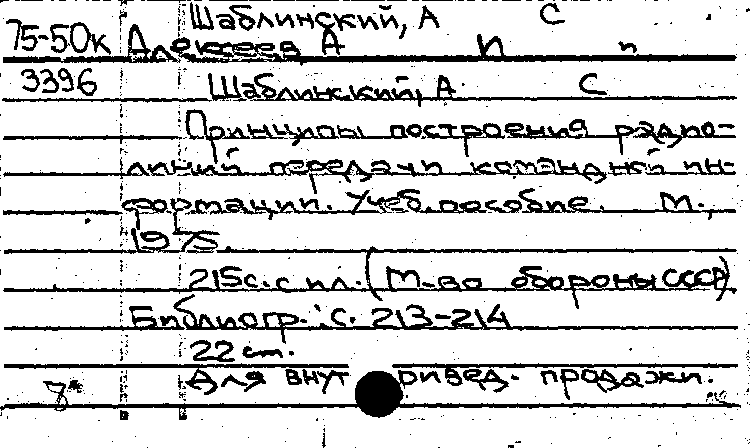 Шаблинский, А С
75-50к Алексеев А И п
3396 Шаблинский, А С
Принципы построения радио-
линий передачи командной ин-
формации. Учеб. пособие. М.,
1975.
215с. с ил. (М-во обороны СССР)
Библиогр.: с. 213-214
22 см.
Для внут ривед. продажи.